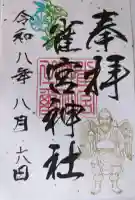 奉拝
雀宮神社
令和八年八月十八日